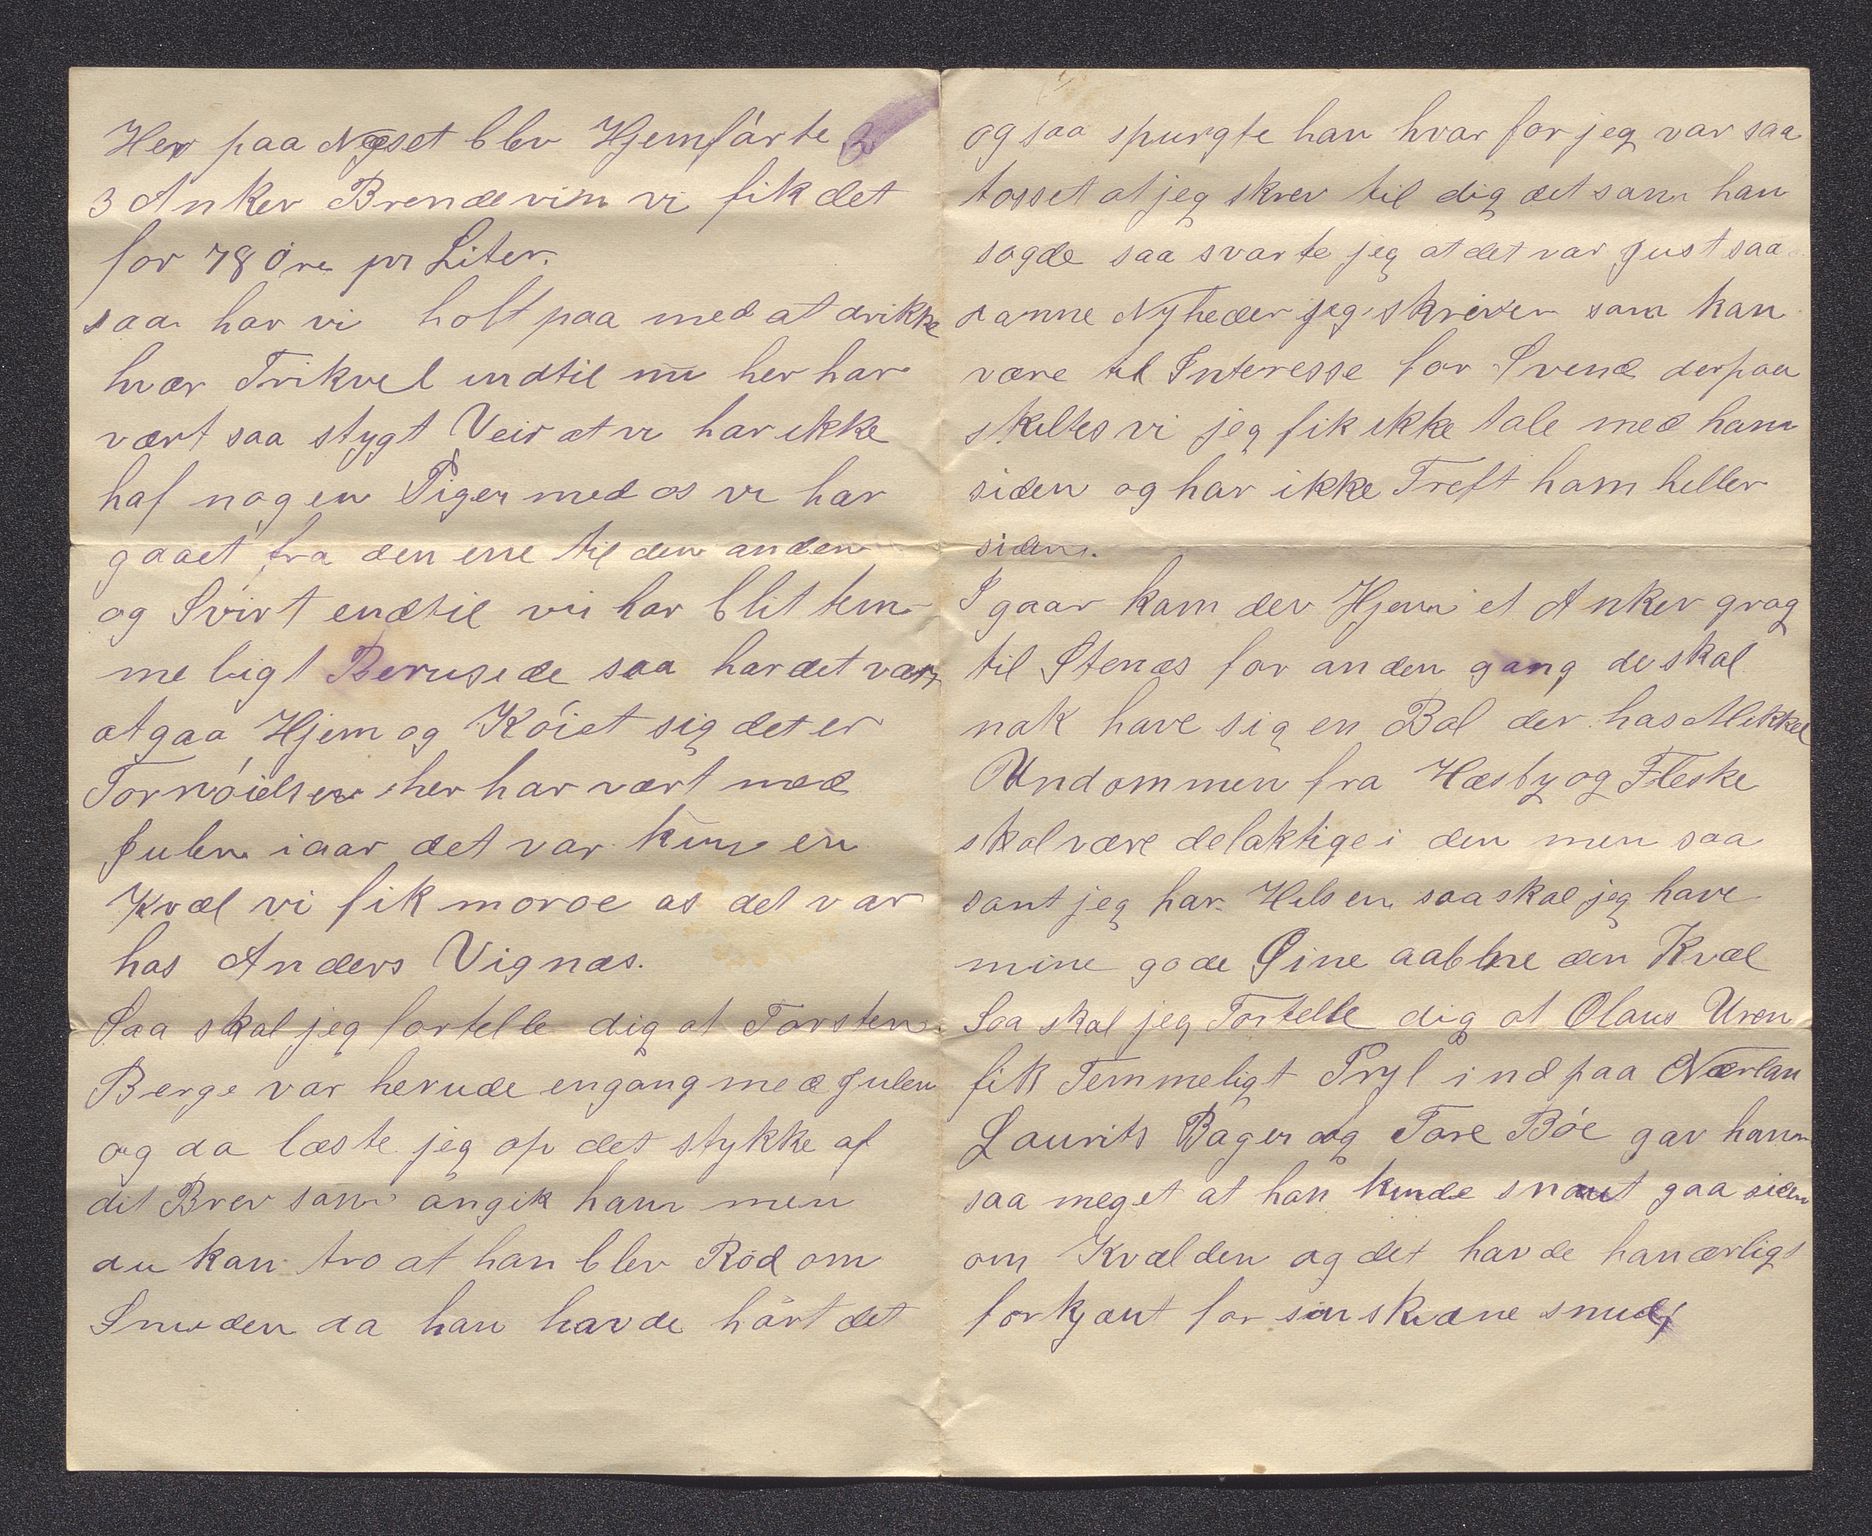 Her paa Næset blev Hjemførte 2
3 Anker Brendevin vi fik det
for 78 Øre pr Liter.
saa har vi holt paa med at drikke
hvær Frikvel indtil nu her har
vært saa stygt Veir at vi har ikke
haf nogen Piger med os vi har
gaaet fra den ene til den anden
og Svirt endtil vi har blit tem-
meligt Berusede saa har det vært
at gaa Hjem og Køiet sig det er
Fornøielsen her har vært med
Julen iaar det var kun en
Kvæl vi fik moroe os det var
hos Anders Vignæs.
Saa skal jeg fortelle dig at Torsten
Berge var herude engang med Julen
og da læste jeg op det stykke af
dit Brev som angik ham men
du kan tro at han blev Rød om
Snuden da han havde hørt det
og saa spurgte han hvar for jeg var saa
tosset at jeg skrev til dig det som han
sagde saa svarte jeg at det var just saa
danne Nyheder jeg skriver som kan
være til Interesse for Svend derpaa
skiltes vi jeg fik ikke tale med ham
siden og har ikke Treft ham heller
siden.
I gaar kom der Hjem et Anker grog
til Stenæs for anden gang de skal
nok have sig en Bal der hos Mikkel
Undommen fra Hæsby og Fleske
skal være delaktige i den men saa
sant jeg har Helsen saa skal jeg have
mine gode Øine aabbne den Kvæl
Saa skal jeg Fortelle dig at Olaus Uren
fik Temmeligt Pryl ind paa Nærlan
Laurits Bager og Tore Bøe gav ham
saa meget at han kunde snaut gaa siden
om Kvælden og det havde han ærligt
forkjent for sin skidne snude